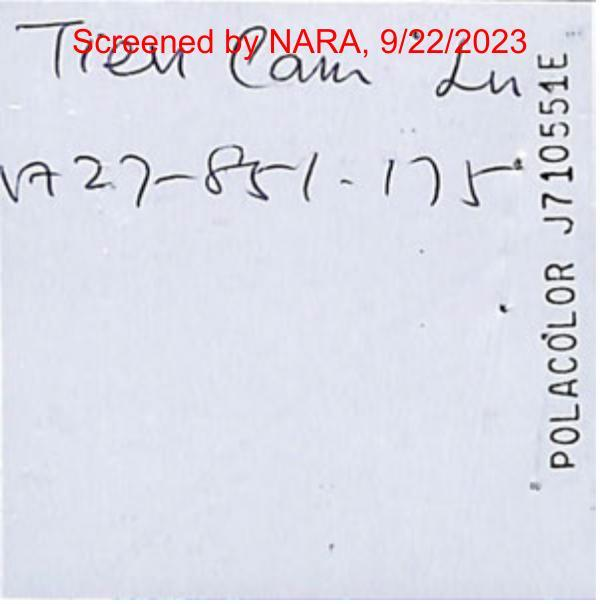 Screened by NARA, 9/22/2023
Tien Cam Lu
A27-851-175
POLACOLOR J710551E